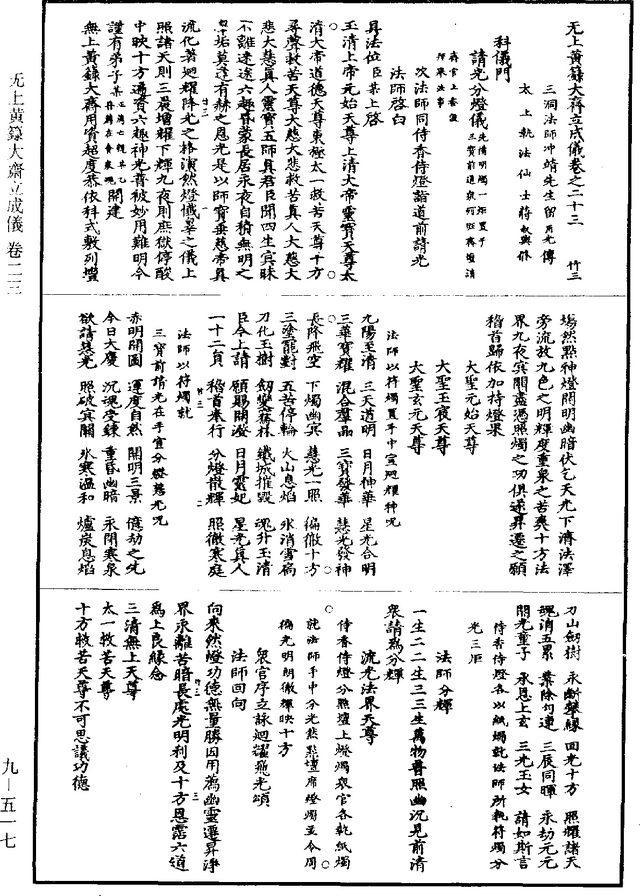 无上黃籙大齋立成儀卷之二十三 竹三
三洞法師冲靖先生留用光傳
太上執法仙士蔣叔輿修
科儀門
請光分燈儀
次法師同侍香侍燈詣道前請光
法師啓白
昇法位 臣某上啓
玉清上帝元始天尊上清大帝靈寶天尊太
清大帝道德天尊東極太一救苦天尊十方
尋聲救苦天尊大慈大悲救苦真人大慈大
悲大慧真人靈寶五師真君臣聞四生寅昧
不離迷途六趣昏蒙長居永夜自積無明之
垢莫逢有赫之恩光是以師寶垂慈帝真
流化著迴耀降光之格演然燈懺辜之儀上
照諸天則三晨增耀下輝九夜則庶獄停酸
中映十方遍資六趣神光普被妙用難明今
謹有弟子某 開建
無上黃籙大齋用資超度恭依科式敷列壇
場然點神燈開明幽暗伏乞天光下濟法澤
旁流放九色之明輝度重泉之苦爽十方法
界九夜㝠關盡憑照燭之功俱遂昇遷之願
稽首歸依加持燈果
大聖元始天尊
大聖玉宸天尊
大聖玄元天尊
法師以符燭置手中宣迴耀神呪
九陽至清 三天道明 日月神華 星光合明
三華寶耀 混合羣品 三寶發華 慧光發神
長降飛空 下燭幽㝠 慧光一照 徧徹十方
三塗罷對 五苦停輪 火山息焰 氷消雪扃
刀化玉樹 劒變騫林 鐵城摧毀 魂升玉清
臣今上請 願賜開澄 日月靈妃 星光真人
一十二真 稽首奉行 分燈散輝 照徹寒庭
法師以符燭就
三寶前請光在手宣分燈慧光呪
赤明開圖 運度自然 開明三景 億劫之先
今日大慶 沉魂受鍊 重昏幽暗 永閉寒泉
欲請慧光 照破㝠關 氷寒溫和 爐炭息焰
刀山劒樹 永斷舉緣 回光十方 照耀諸天
魂消五累 業除勾連 三辰同暉 永劫元元
開光童子 承恩上玄 三光玉女 請如斯言
侍香侍燈各以紙燭就法師所執符燭分
光三炬
法師分輝
一生二二生三三生萬物普照幽沉見前清
衆請爲分輝
流光法界天尊
侍香侍燈分點壇上燈燭衆官各執紙燭
就法師手中分光然點壇席燈燭至令周
徧光明朗徹輝映十方
衆官序立詠迴耀飛光頌
法師回向
向來然燈功德無量勝因用薦幽靈遷昇淨
界永離苦暗長處光明利及十方恩霑六道
爲上良緣念
三清無上天尊
太一救苦天尊
十方救苦天尊不可思議功德
无上黃籙大齋立成儀 卷二三
九—五一七